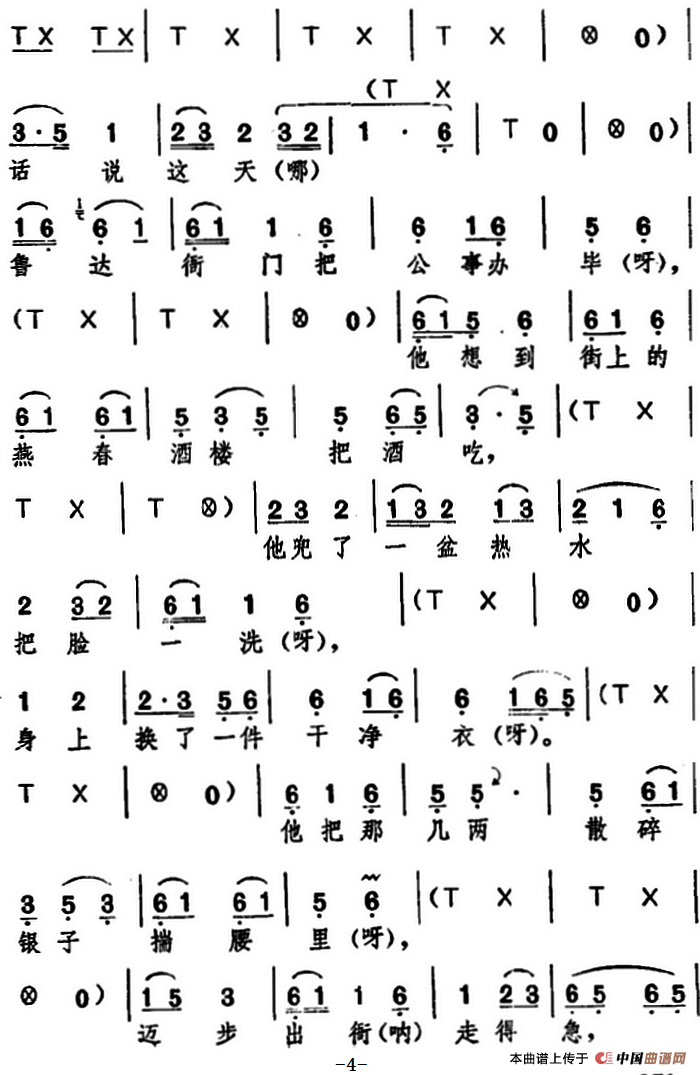 T X T X | T X | T X | T X | ⊗ 0) |
(T X
3·5 1 | 2 3 2 3 2 | 1 · 6 | T 0 | ⊗ 0) |
话 说 这 天(哪)
1 6 6 1 | 6 1 1 6 | 6 1 6 | 5 6 |
鲁 达 衙 门 把 公 事办 毕(呀),
(T X | T X | ⊗ 0) | 6 1 5 6 | 6 1 6 |
他 想 到 街上的
6 1 6 1 | 5 3 5 | 5 6 5 | 3·5 | (T X
燕 春 酒 楼 把 酒 吃,
T X | T ⊗) | 2 3 2 | 1 3 2 1 3 | 2 1 6 |
他兜了 一 盆 热 水
2 3 2 | 6 1 1 6 | (T X | ⊗ 0) |
把 脸 一 洗(呀),
1 2 | 2·3 5 6 | 6 1 6 | 6 1 6 5 | (T X
身 上 换了一件 干 净 衣(呀)。
T X | ⊗ 0) | 6 1 6 | 5 5 · | 5 6 1 |
他 把 那 几 两 散 碎
3 5 3 | 6 1 6 1 | 5 6 | (T X | T X |
银 子 揣 腰 里(呀),
⊗ 0) | 1 5 3 | 6 1 1 6 | 1 2 3 | 6 5 6 5 |
迈 步 出 衙(呐) 走 得 急,
-4-
本曲谱上传于 中国曲谱网